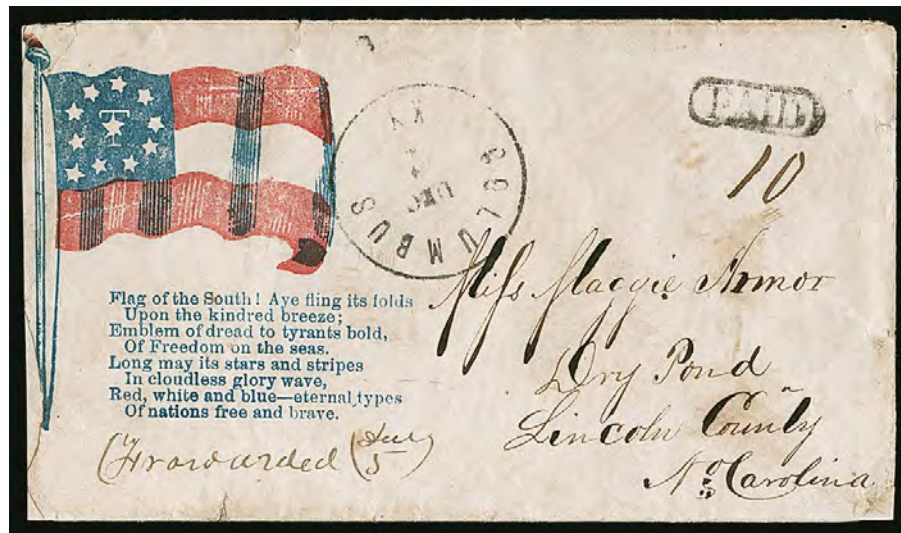 T
COLUMBUS
KY
DEC
PAID
10
Flag of the South! Aye fling its folds
Upon the kindred breeze;
Emblem of dread to tyrants bold,
Of Freedom on the seas.
Long may its stars and stripes
In cloudless glory wave,
Red, white and blue—eternal types
Of nations free and brave.
Miss Maggie Armor
Dry Pond
Lincoln County
No Carolina
(Frowarded
5